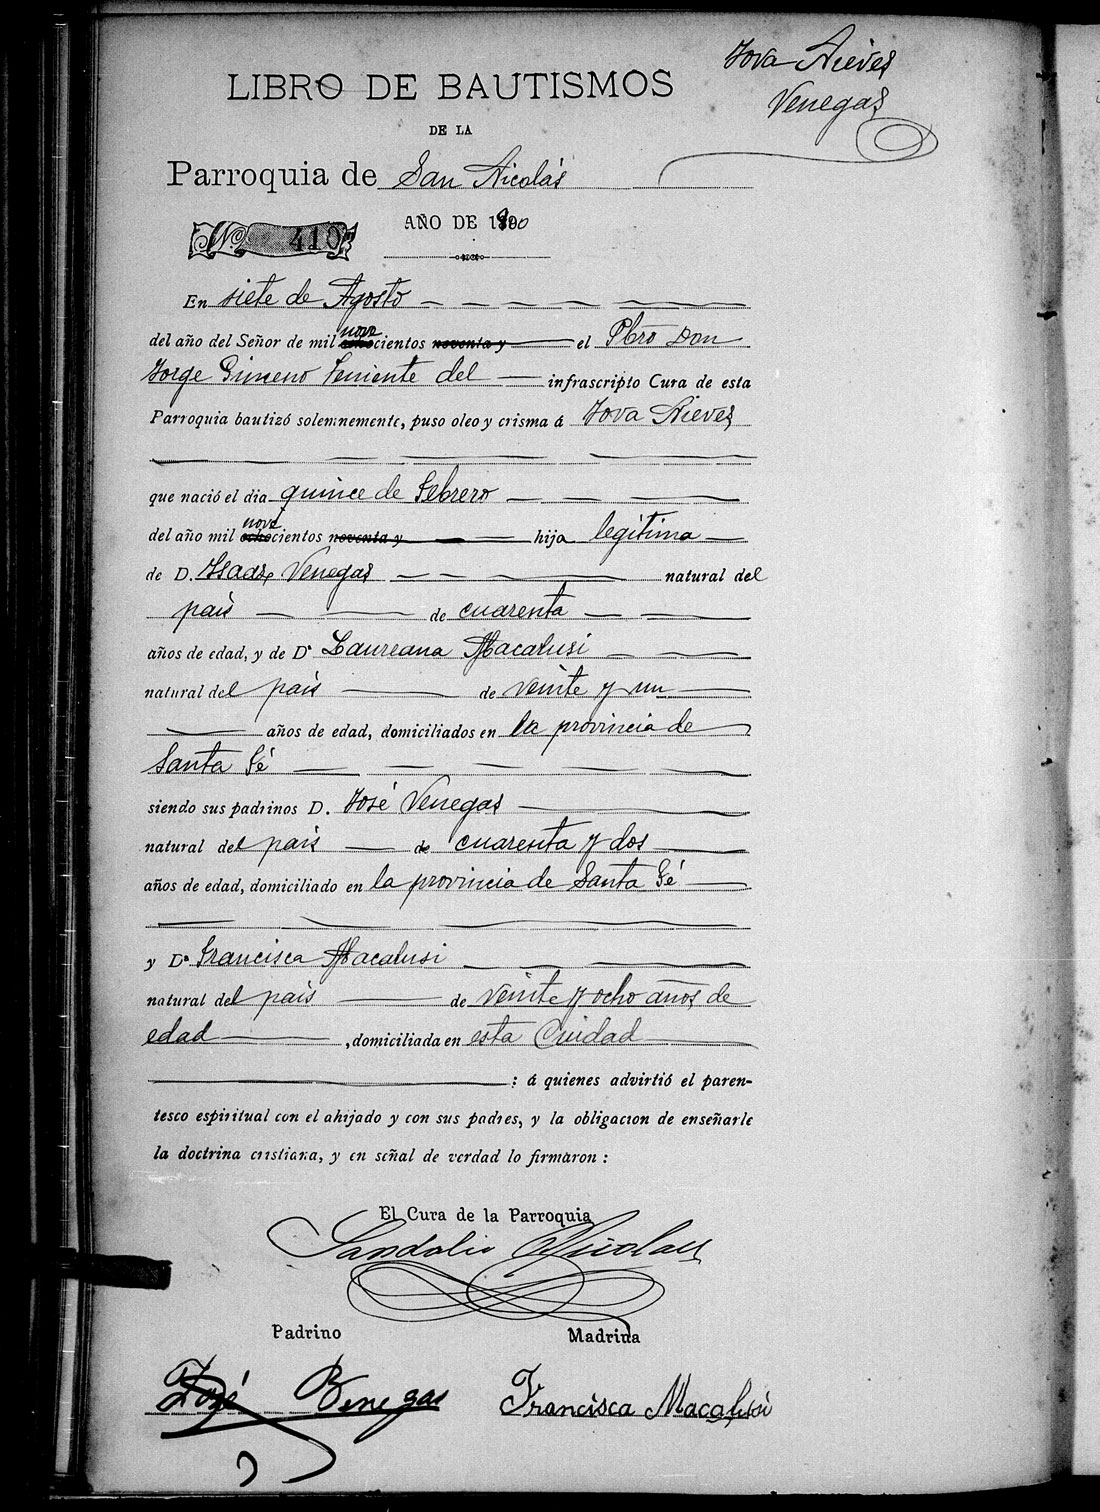 Jova Nieves
Venegas
LIBRO DE BAUTISMOS
DE LA
Parroquia de San Nicolás
AÑO DE 1900
No. 410
En siete de Agosto
del año del Señor de mil nove cientos el Pbro Don
Jorge Gimeno Teniente del infrascripto Cura de esta
Parroquia bautizó solemnemente, puso oleo y crisma á Jova Nieves
que nació el dia quince de Febrero
del año mil nove cientos hija legítima
de D. Isaac Venegas natural del
país de cuarenta
años de edad, y de Da Laureana Macalusi
natural del país de veinte y un
años de edad, domiciliados en la provincia de
Santa Fé
siendo sus padrinos D. José Venegas
natural del país de cuarenta y dos
años de edad, domiciliado en la provincia de Santa Fé
y Da Francisca Macalusi
natural del país de veinte y ocho años de
edad , domiciliada en esta Ciudad
: á quienes advirtió el paren-
tesco espiritual con el ahijado y con sus padres, y la obligacion de enseñarle
la doctrina cristiana, y en señal de verdad lo firmaron :
El Cura de la Parroquia
Sandalio Nicolau
Padrino Madrina
José Benegas Francisca Macalusi